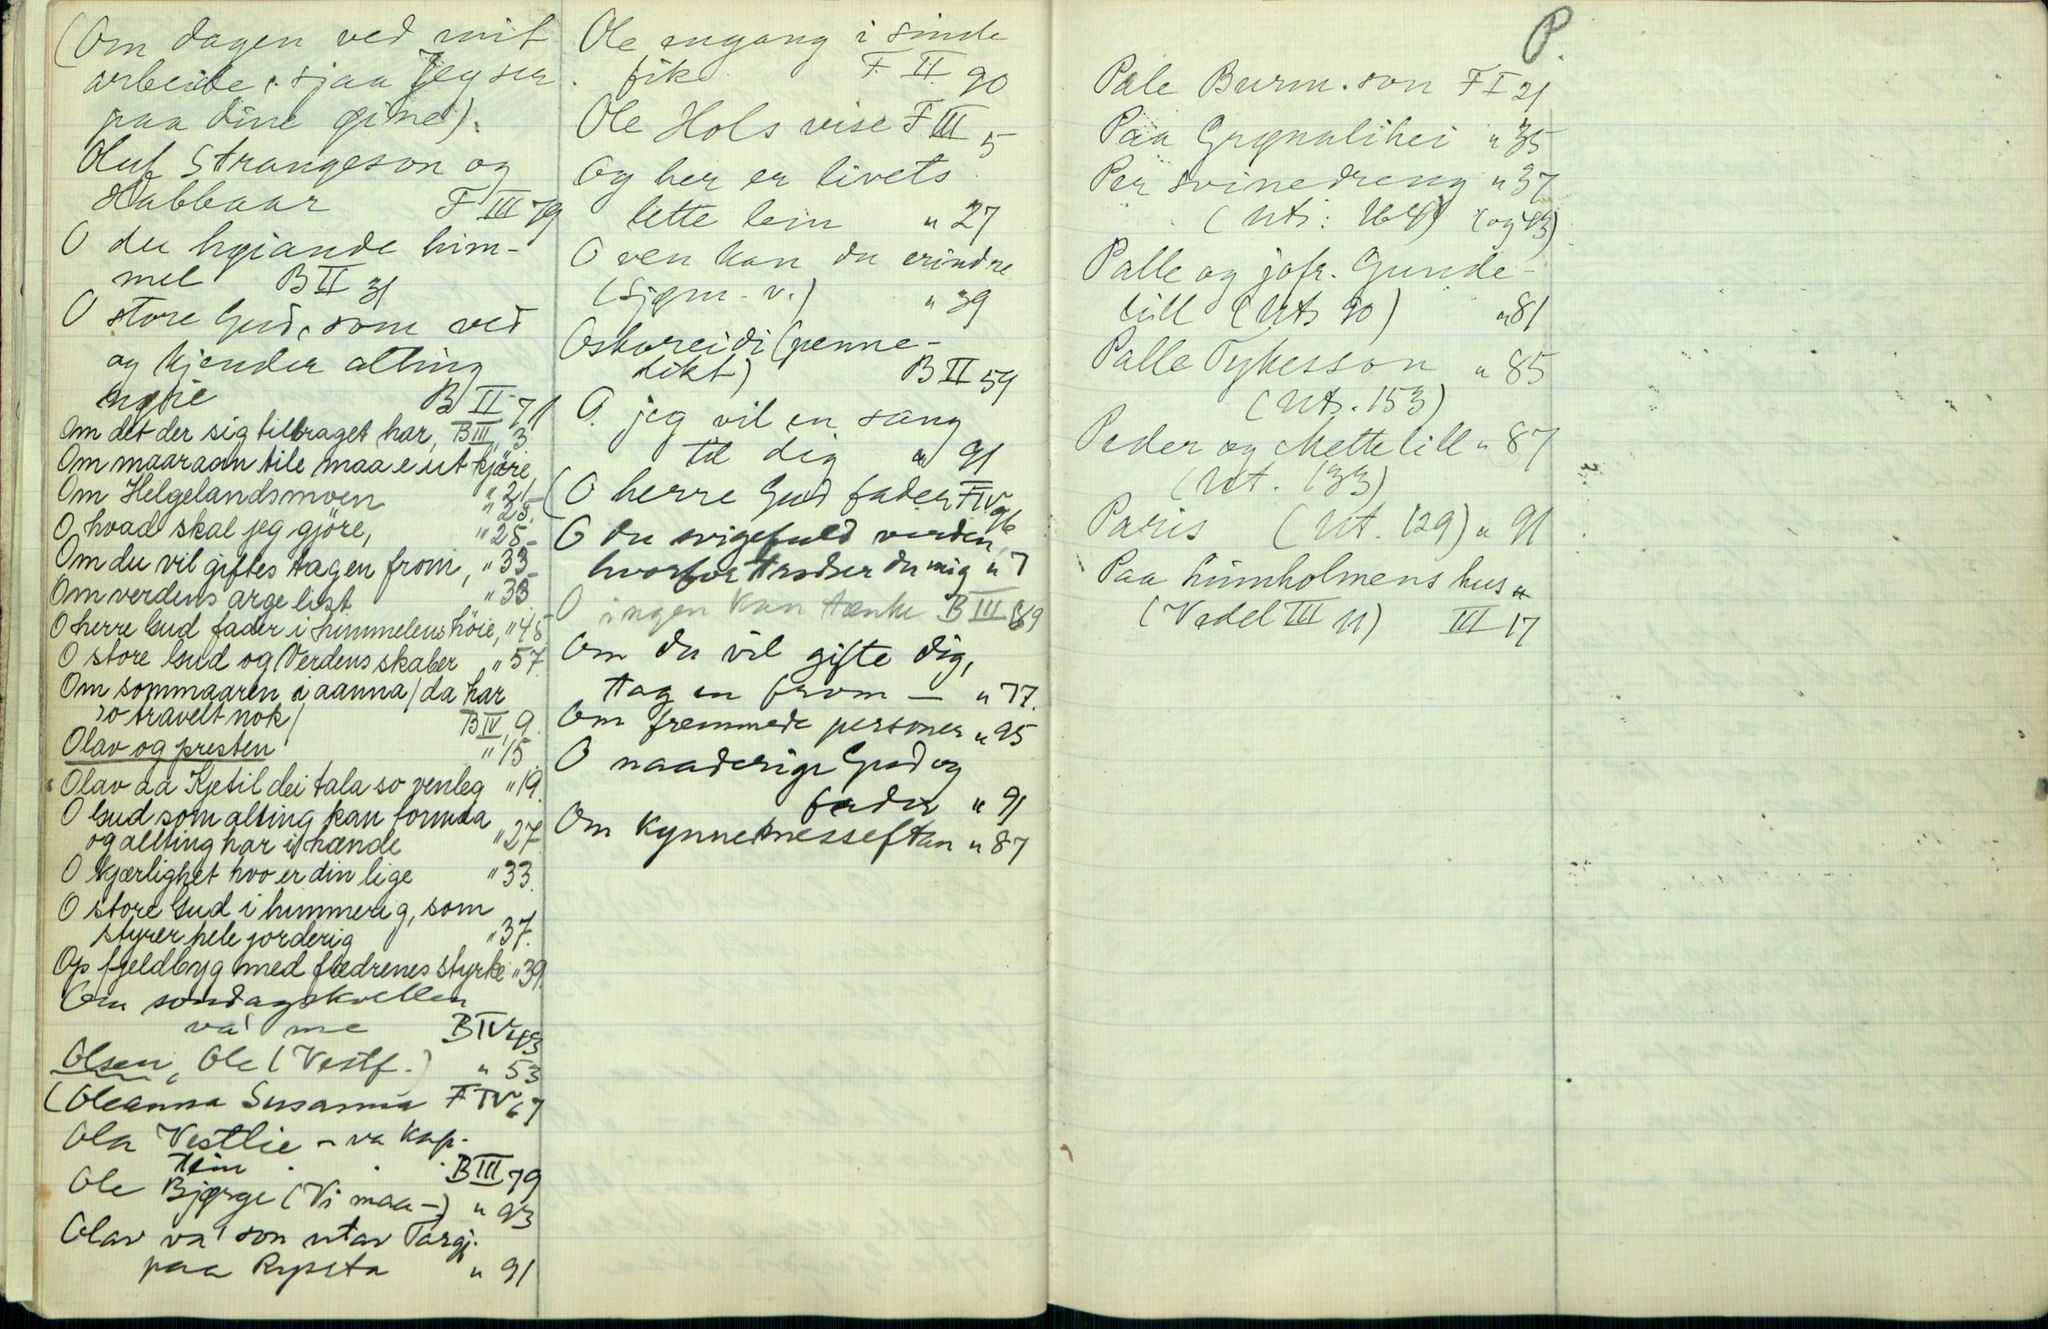 (Om dagen ved mit
arbeide : sjaa Jeg ser
paa dine øine).
Oluf Strangeson og
Habbaar F III 79
O du høiande him-
mel B II 31
O store Gud, som ved
og kjender alting
nøie B II 71
Om det der sig tildraget har, B III, 3
Om maaraan tile maa e ut kjöre
" 21
Om Helgelandsmoen " 25.
O hvad skal jeg gjöre, " 25
Om du vil giftes tag en from, " 33
Om verdens arge list " 33
O herre Gud fader i himmelens höie, " 45
O store Gud og Verdens skaber " 57.
Om sommaaren i aanna / da har
so travelt nok / B IV, 9.
Olav og presten " 15
Olav aa Kjetil dei tala so venleg " 19.
O Gud som alting kan formaa
og allting har i hænde " 27.
O kjærlighet hvo er din lige " 33.
O store Gud i himmerig, som
styrer hele jorderig " 37.
Op fjeldbyg med fædrenes styrke " 39.
Om søndagskvellen
va' me B IV 43
Olsen, Ole (Vestf.) " 53
(Oleanna Susanna F IV 67
Ola Vestlie - va kap-
tein B III 79
Ole Bjørge (Vi maa -) " 93
Olav va' son utav Targj.
paa Rysta " 91
Ole engang i sinde
fik F II 90
Ole Hols vise F III 5
Og her er livets
lette lein " 27
O ven kan du erindre
(Sjøm. v.) " 39
Oskoreidi (penne-
dikt) B II 59
O jeg vil en sang
til dig " 91
(O herre Gud fader F IV 96
O du svigefuld verden,
hvorfor trodser du mig " 7
O ingen kan tænke B III 69
Om du vil gifte dig,
tag en from — " 77.
Om fremmede personer " 95
O naaderige Gud og
fader " 91
Om kynnesmesseftan " 87
P.
Pale Burm. son F I 21
Paa Grønalihei " 35
Per svinedreng " 37
(Uts: 164) (og 43)
Palle og jofr. Gunde-
lill (Uts 90) " 81
Palle Tykesson " 85
(Uts. 153)
Peder og Mettelill " 87
(Ut. 133)
Paris (Ut. 129) " 91
Paa Limholmens hus "
(Vedel III 11) III 17